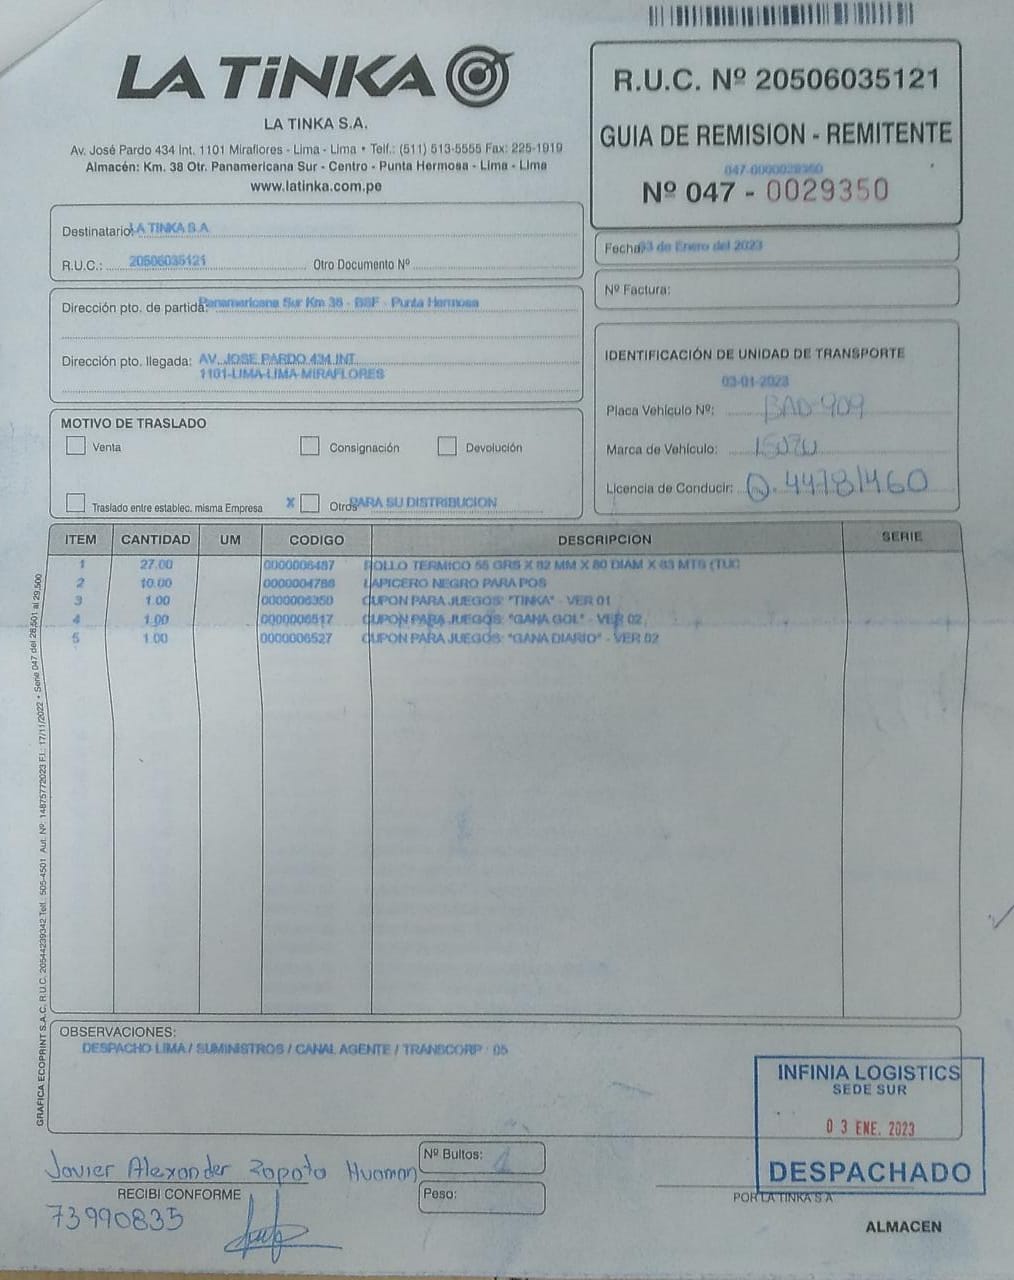 LA TiNKA
LA TINKA S.A.
Av. José Pardo 434 Int. 1101 Miraflores - Lima - Lima • Telf.: (511) 513-5555 Fax: 225-1919
Almacén: Km. 38 Otr. Panamericana Sur - Centro - Punta Hermosa - Lima - Lima
www.latinka.com.pe
R.U.C. Nº 20506035121
GUIA DE REMISION - REMITENTE
Nº 047 - 0029350
Destinatario: LA TINKA S.A.
R.U.C.: 20506035121 Otro Documento Nº
Fecha: 03 de Enero del 2023
Nº Factura:
Dirección pto. de partida: Panamericana Sur Km 38 - BSF - Punta Hermosa
Dirección pto. llegada: AV. JOSE PARDO 434 INT.
1101-LIMA-LIMA-MIRAFLORES
IDENTIFICACIÓN DE UNIDAD DE TRANSPORTE
03-01-2023
Placa Vehículo Nº: BAD-909
Marca de Vehículo: ISUZU
Licencia de Conducir: Q.44781460
MOTIVO DE TRASLADO
Venta Consignación Devolución
Traslado entre establec. misma Empresa X Otros PARA SU DISTRIBUCION
ITEM CANTIDAD UM CODIGO DESCRIPCION SERIE
1 27.00 0000006487 ROLLO TERMICO 55 GRS X 82 MM X 80 DIAM X 83 MTS (TUC
2 10.00 0000004786 LAPICERO NEGRO PARA POS
3 1.00 0000006350 CUPON PARA JUEGOS: "TINKA" - VER 01
4 1.00 0000006517 CUPON PARA JUEGOS: "GANA GOL" - VER 02
5 1.00 0000006527 CUPON PARA JUEGOS: "GANA DIARIO" - VER 02
GRAFICA ECOPRINT S.A.C. R.U.C. 20544239342 Telf.: 505-4501 Aut. Nº: 14875772023 F.I.: 17/11/2022 • Serie 047 del 28,501 al 29,500
OBSERVACIONES:
DESPACHO LIMA / SUMINISTROS / CANAL AGENTE / TRANSCORP - 05
INFINIA LOGISTICS
SEDE SUR
03 ENE. 2023
DESPACHADO
Javier Alexander Zapata Huaman
RECIBI CONFORME
73990835
Nº Bultos: 1
Peso:
POR LA TINKA S A
ALMACEN